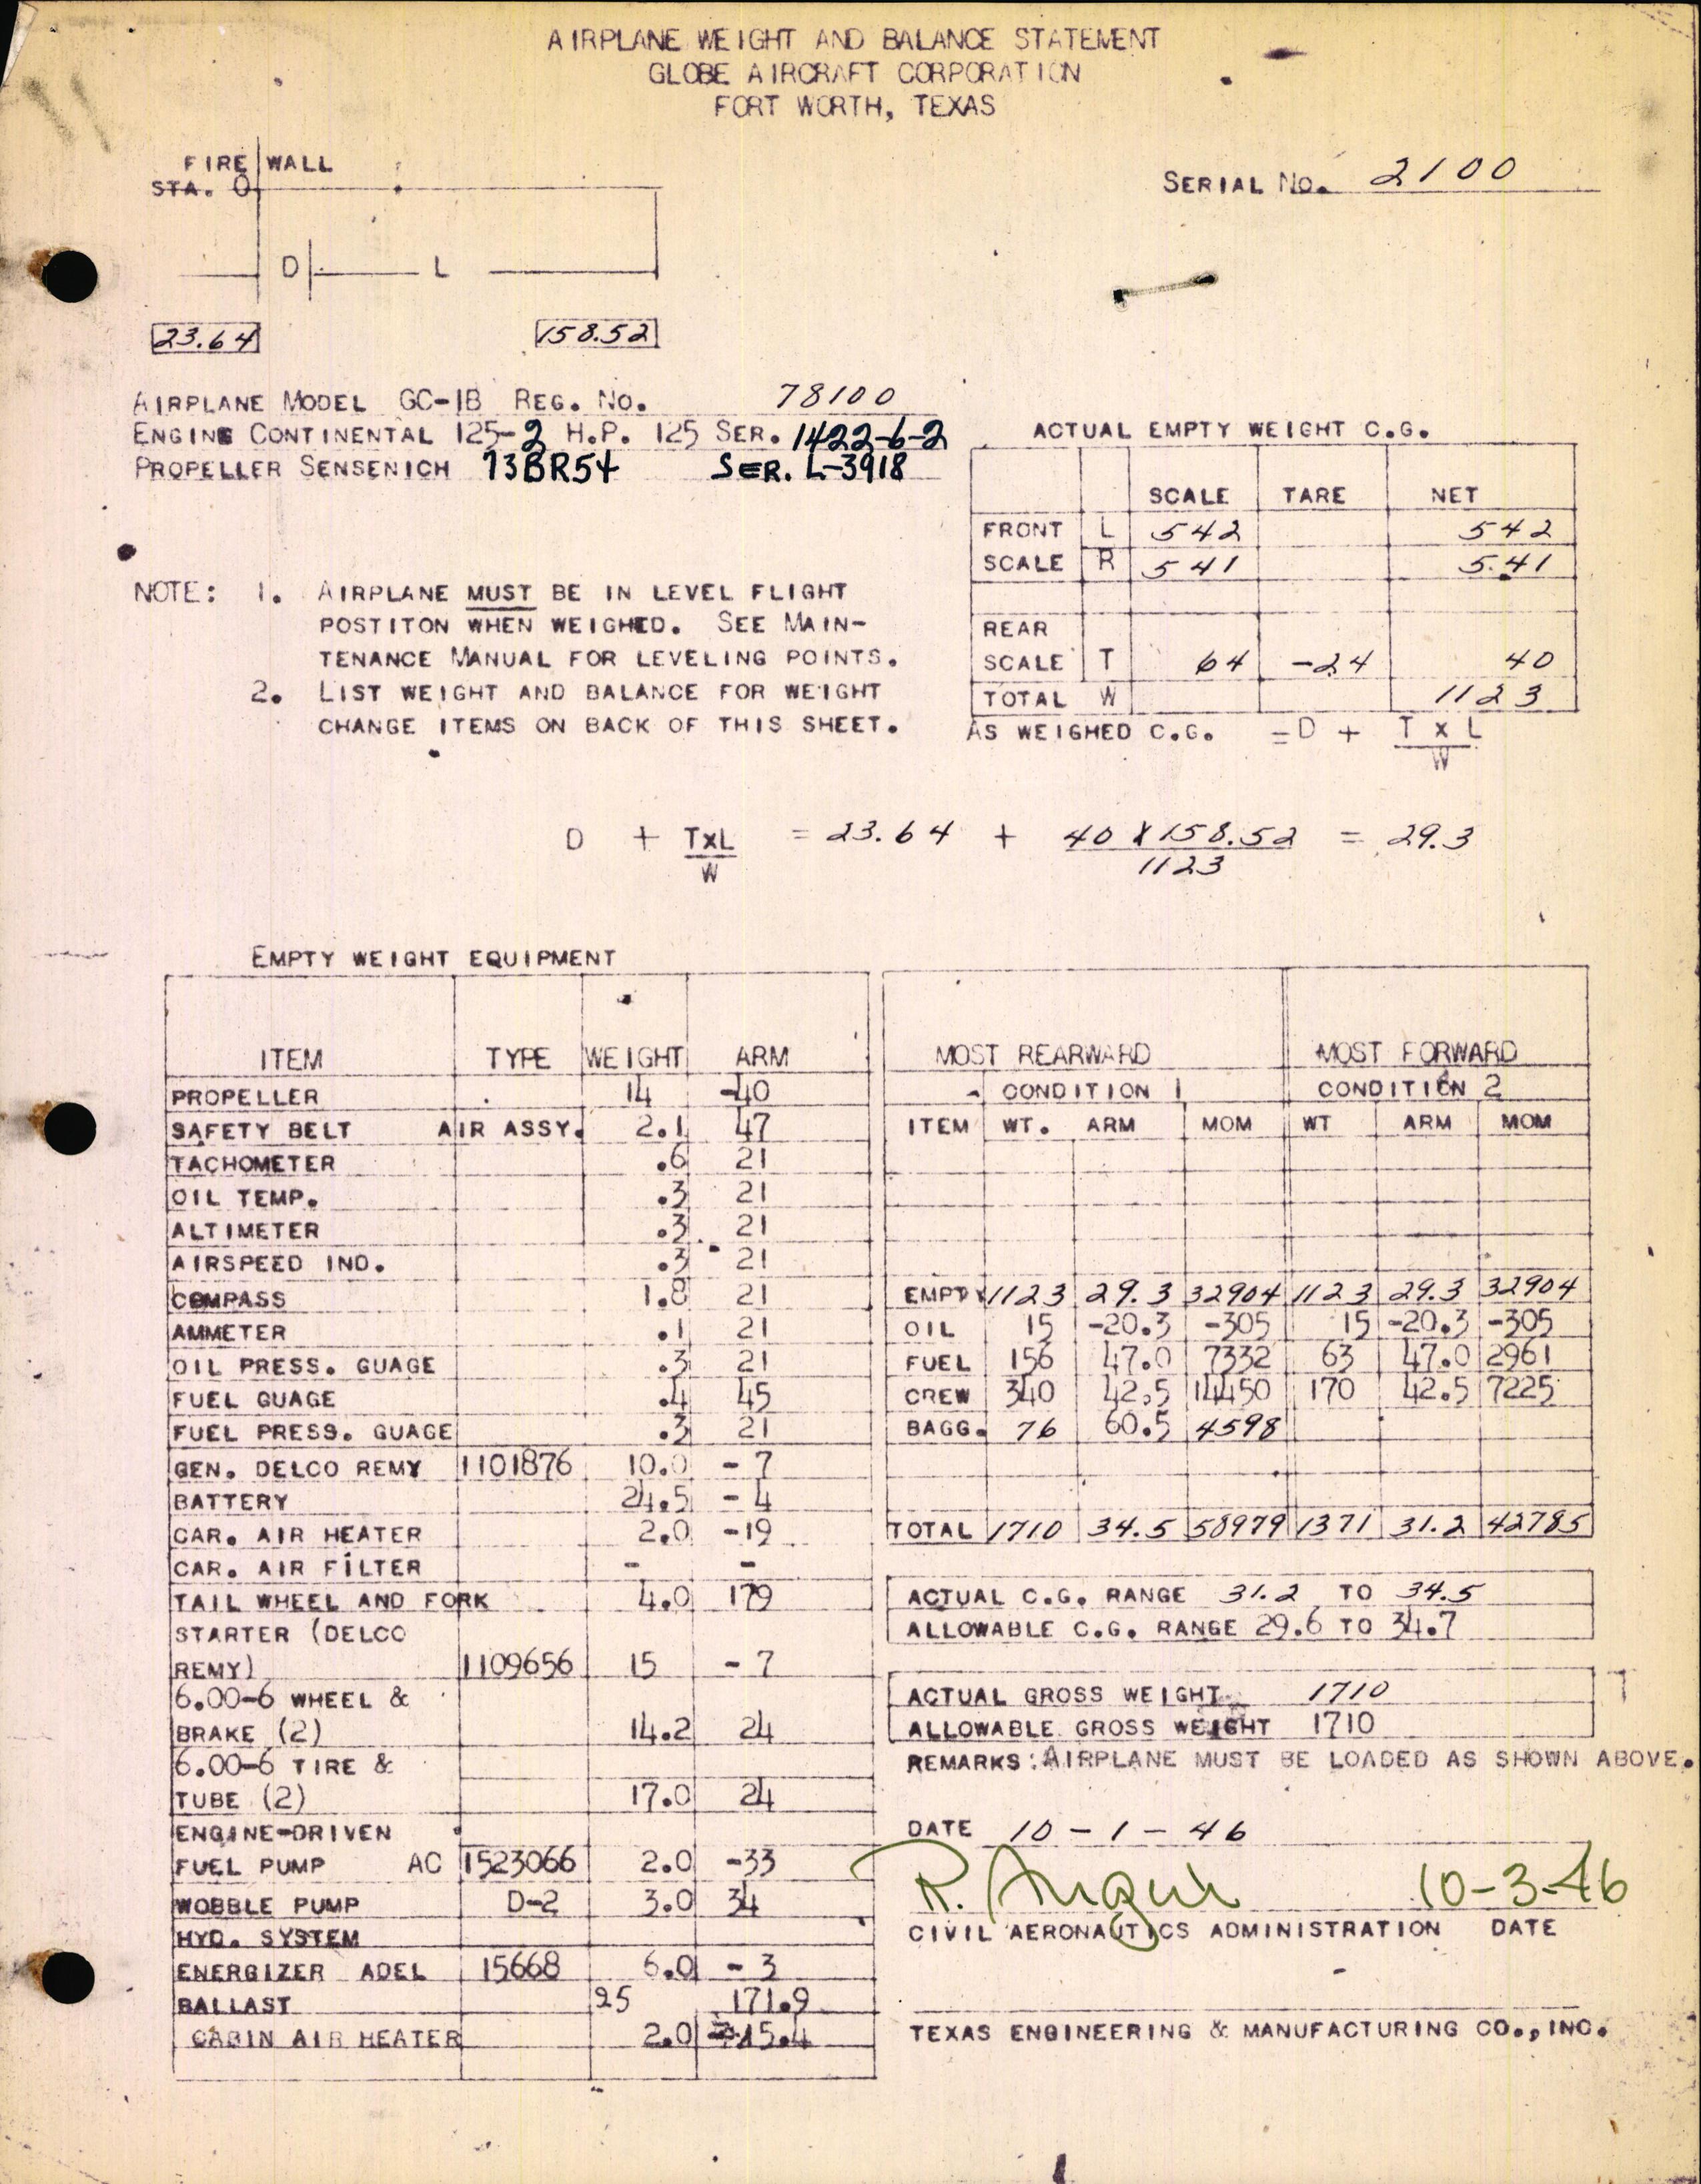 AIRPLANE WEIGHT AND BALANCE STATEMENT
GLOBE AIRCRAFT CORPORATION
FORT WORTH, TEXAS
FIRE WALL
STA. 0
SERIAL NO. 2100
D L
23.64 158.52
AIRPLANE MODEL GC-1B REG. NO. 78100
ENGINE CONTINENTAL 125-2 H.P. 125 SER. 1422-6-2
PROPELLER SENSENICH 73BR54 SER. L-3918
ACTUAL EMPTY WEIGHT C.G.
SCALE TARE NET
FRONT L 542 542
SCALE R 541 541
REAR
SCALE T 64 -24 40
TOTAL W 1123
AS WEIGHED C.G. = D + T X L
W
NOTE: 1. AIRPLANE MUST BE IN LEVEL FLIGHT
POSTITON WHEN WEIGHED. SEE MAIN-
TENANCE MANUAL FOR LEVELING POINTS.
2. LIST WEIGHT AND BALANCE FOR WEIGHT
CHANGE ITEMS ON BACK OF THIS SHEET.
D + TXL = 23.64 + 40 X 158.52 = 29.3
W 1123
EMPTY WEIGHT EQUIPMENT
ITEM TYPE WEIGHT ARM
PROPELLER 14 -40
SAFETY BELT AIR ASSY. 2.1 47
TACHOMETER .6 21
OIL TEMP. .3 21
ALTIMETER .3 21
AIRSPEED IND. .3 21
COMPASS 1.8 21
AMMETER .1 21
OIL PRESS. GUAGE .3 21
FUEL GUAGE .4 45
FUEL PRESS. GUAGE .3 21
GEN. DELCO REMY 1101876 10.0 - 7
BATTERY 24.5 - 4
CAR. AIR HEATER 2.0 -19
CAR. AIR FILTER - -
TAIL WHEEL AND FORK 4.0 179
STARTER (DELCO
REMY) 1109656 15 - 7
6.00-6 WHEEL &
BRAKE (2) 14.2 24
6.00-6 TIRE &
TUBE (2) 17.0 24
ENGINE-DRIVEN
FUEL PUMP AC 1523066 2.0 -33
WOBBLE PUMP D-2 3.0 34
HYD. SYSTEM
ENERGIZER ADEL 15668 6.0 - 3
BALLAST 25 171.9
CABIN AIR HEATER 2.0 -15.4
MOST REARWARD MOST FORWARD
CONDITION 1 CONDITION 2
ITEM WT. ARM MOM WT ARM MOM
EMPTY 1123 29.3 32904 1123 29.3 32904
OIL 15 -20.3 -305 15 -20.3 -305
FUEL 156 47.0 7332 63 47.0 2961
CREW 340 42.5 14450 170 42.5 7225
BAGG. 76 60.5 4598
TOTAL 1710 34.5 58979 1371 31.2 42785
ACTUAL C.G. RANGE 31.2 TO 34.5
ALLOWABLE C.G. RANGE 29.6 TO 34.7
ACTUAL GROSS WEIGHT 1710
ALLOWABLE GROSS WEIGHT 1710
REMARKS: AIRPLANE MUST BE LOADED AS SHOWN ABOVE.
DATE 10-1-46
R. 10-3-46
CIVIL AERONAUTICS ADMINISTRATION DATE
TEXAS ENGINEERING & MANUFACTURING CO., INC.